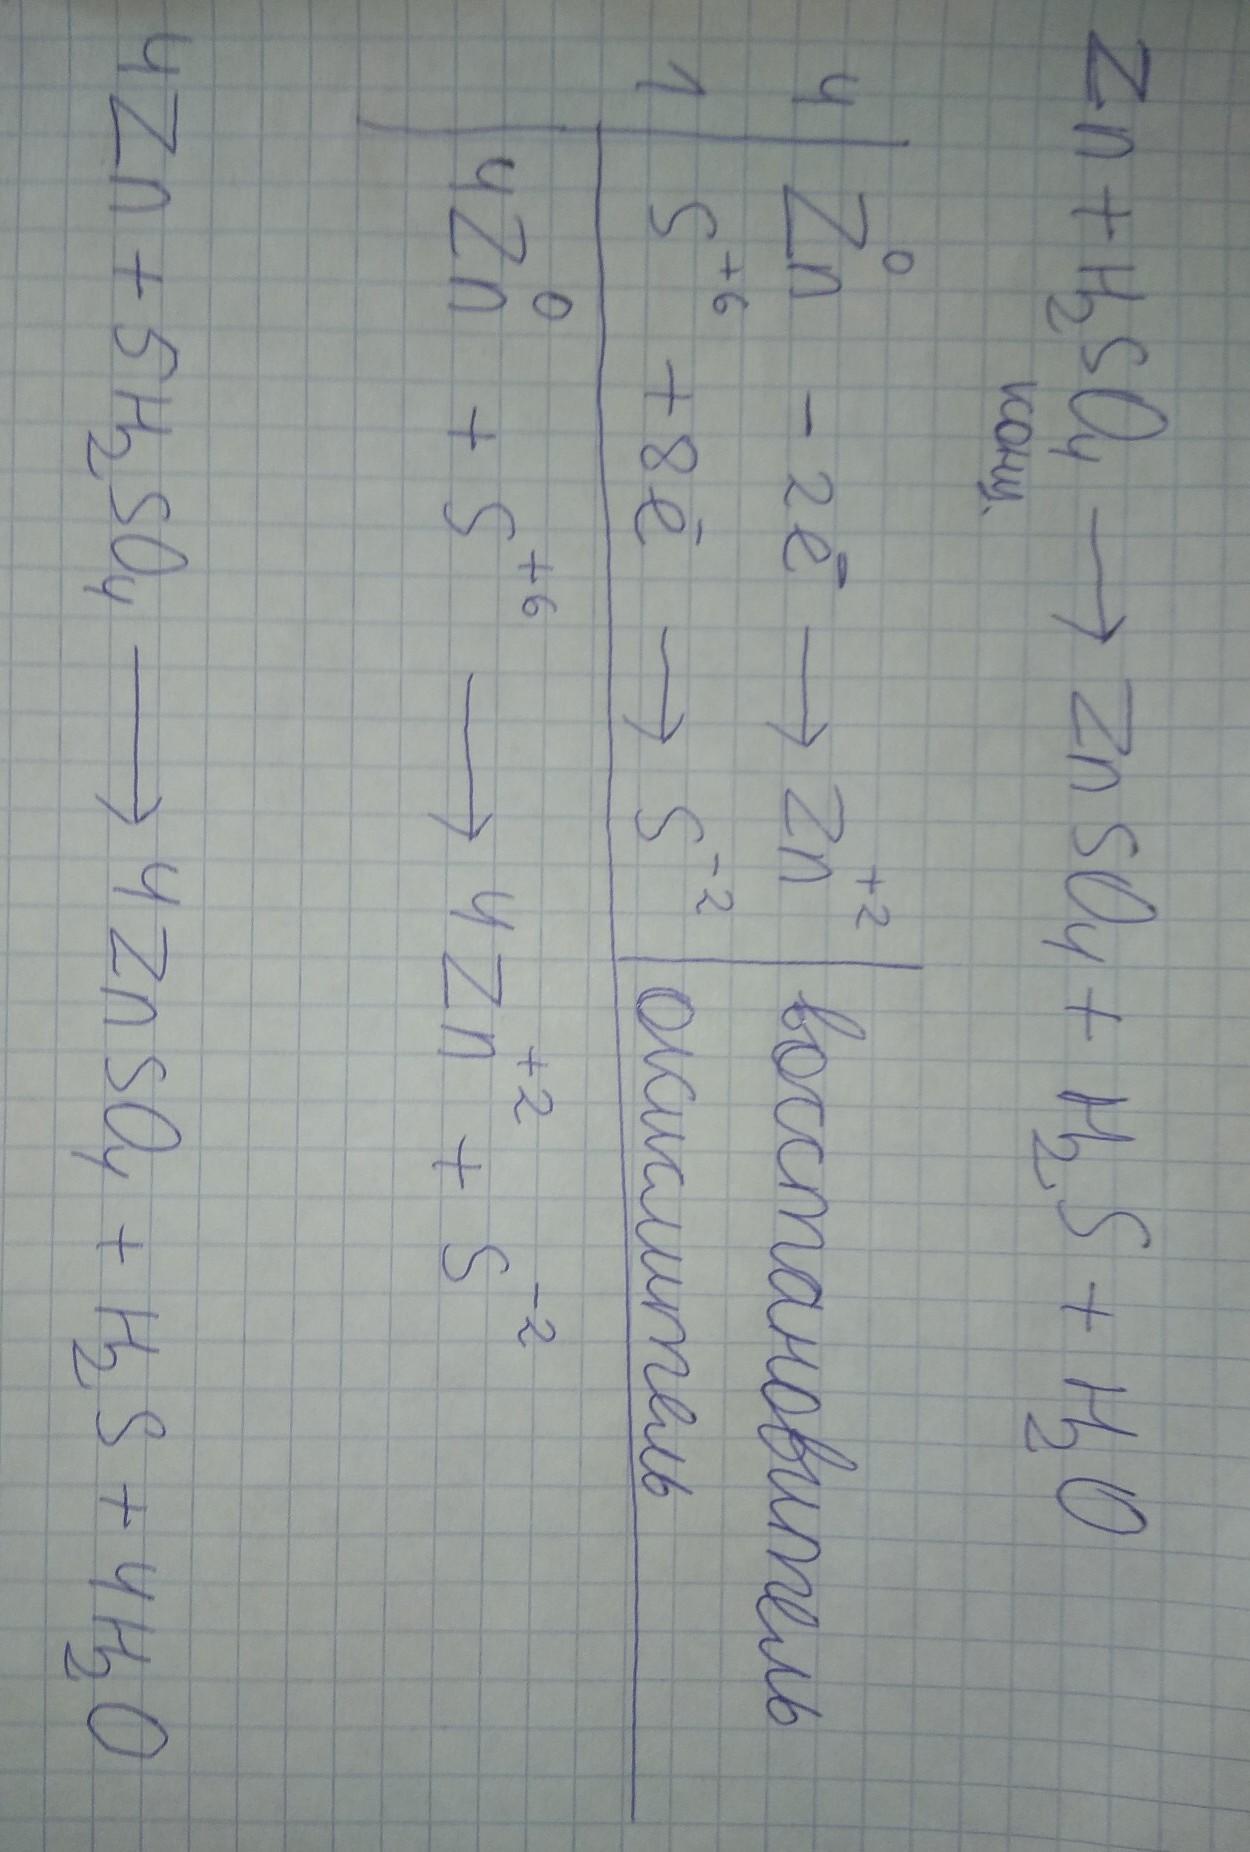 Zn + H₂SO₄ → ZnSO₄ + H₂S + H₂O
конц.
4 | Zn⁰ - 2ē → Zn⁺² | востановитель
1 | S⁺⁶ + 8ē → S⁻² | окислитель
4Zn⁰ + S⁺⁶ → 4Zn⁺² + S⁻²
4Zn + 5H₂SO₄ → 4ZnSO₄ + H₂S + 4H₂O